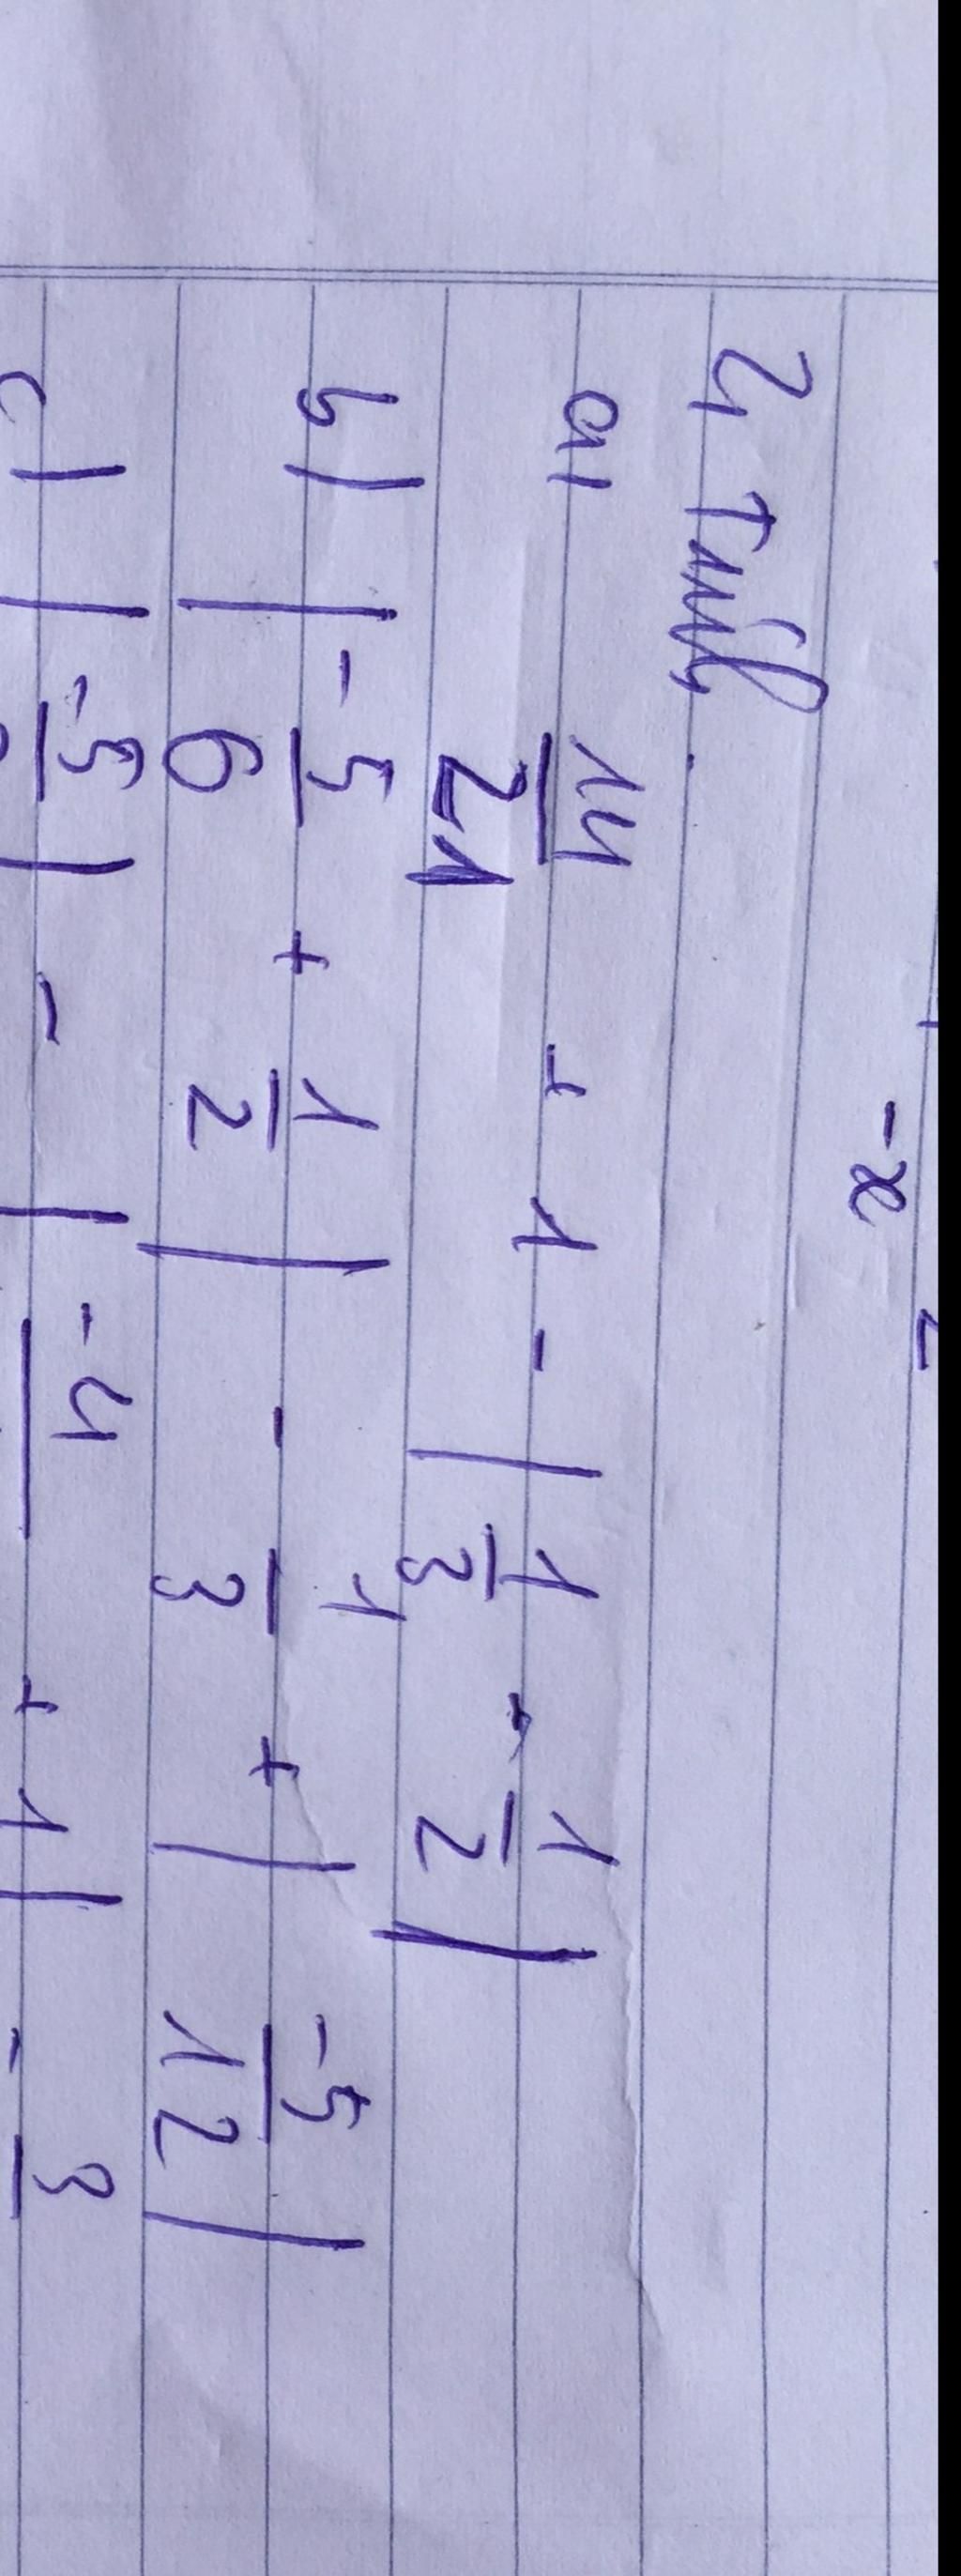 -x
2, Tính.
a, 14/21 + 1 - | 1/3 - 1/2 |
b) | -5/6 + 1/2 | - 1/3 + | -5/12 |
c) | -5 | - | -4 + 1 | - 3